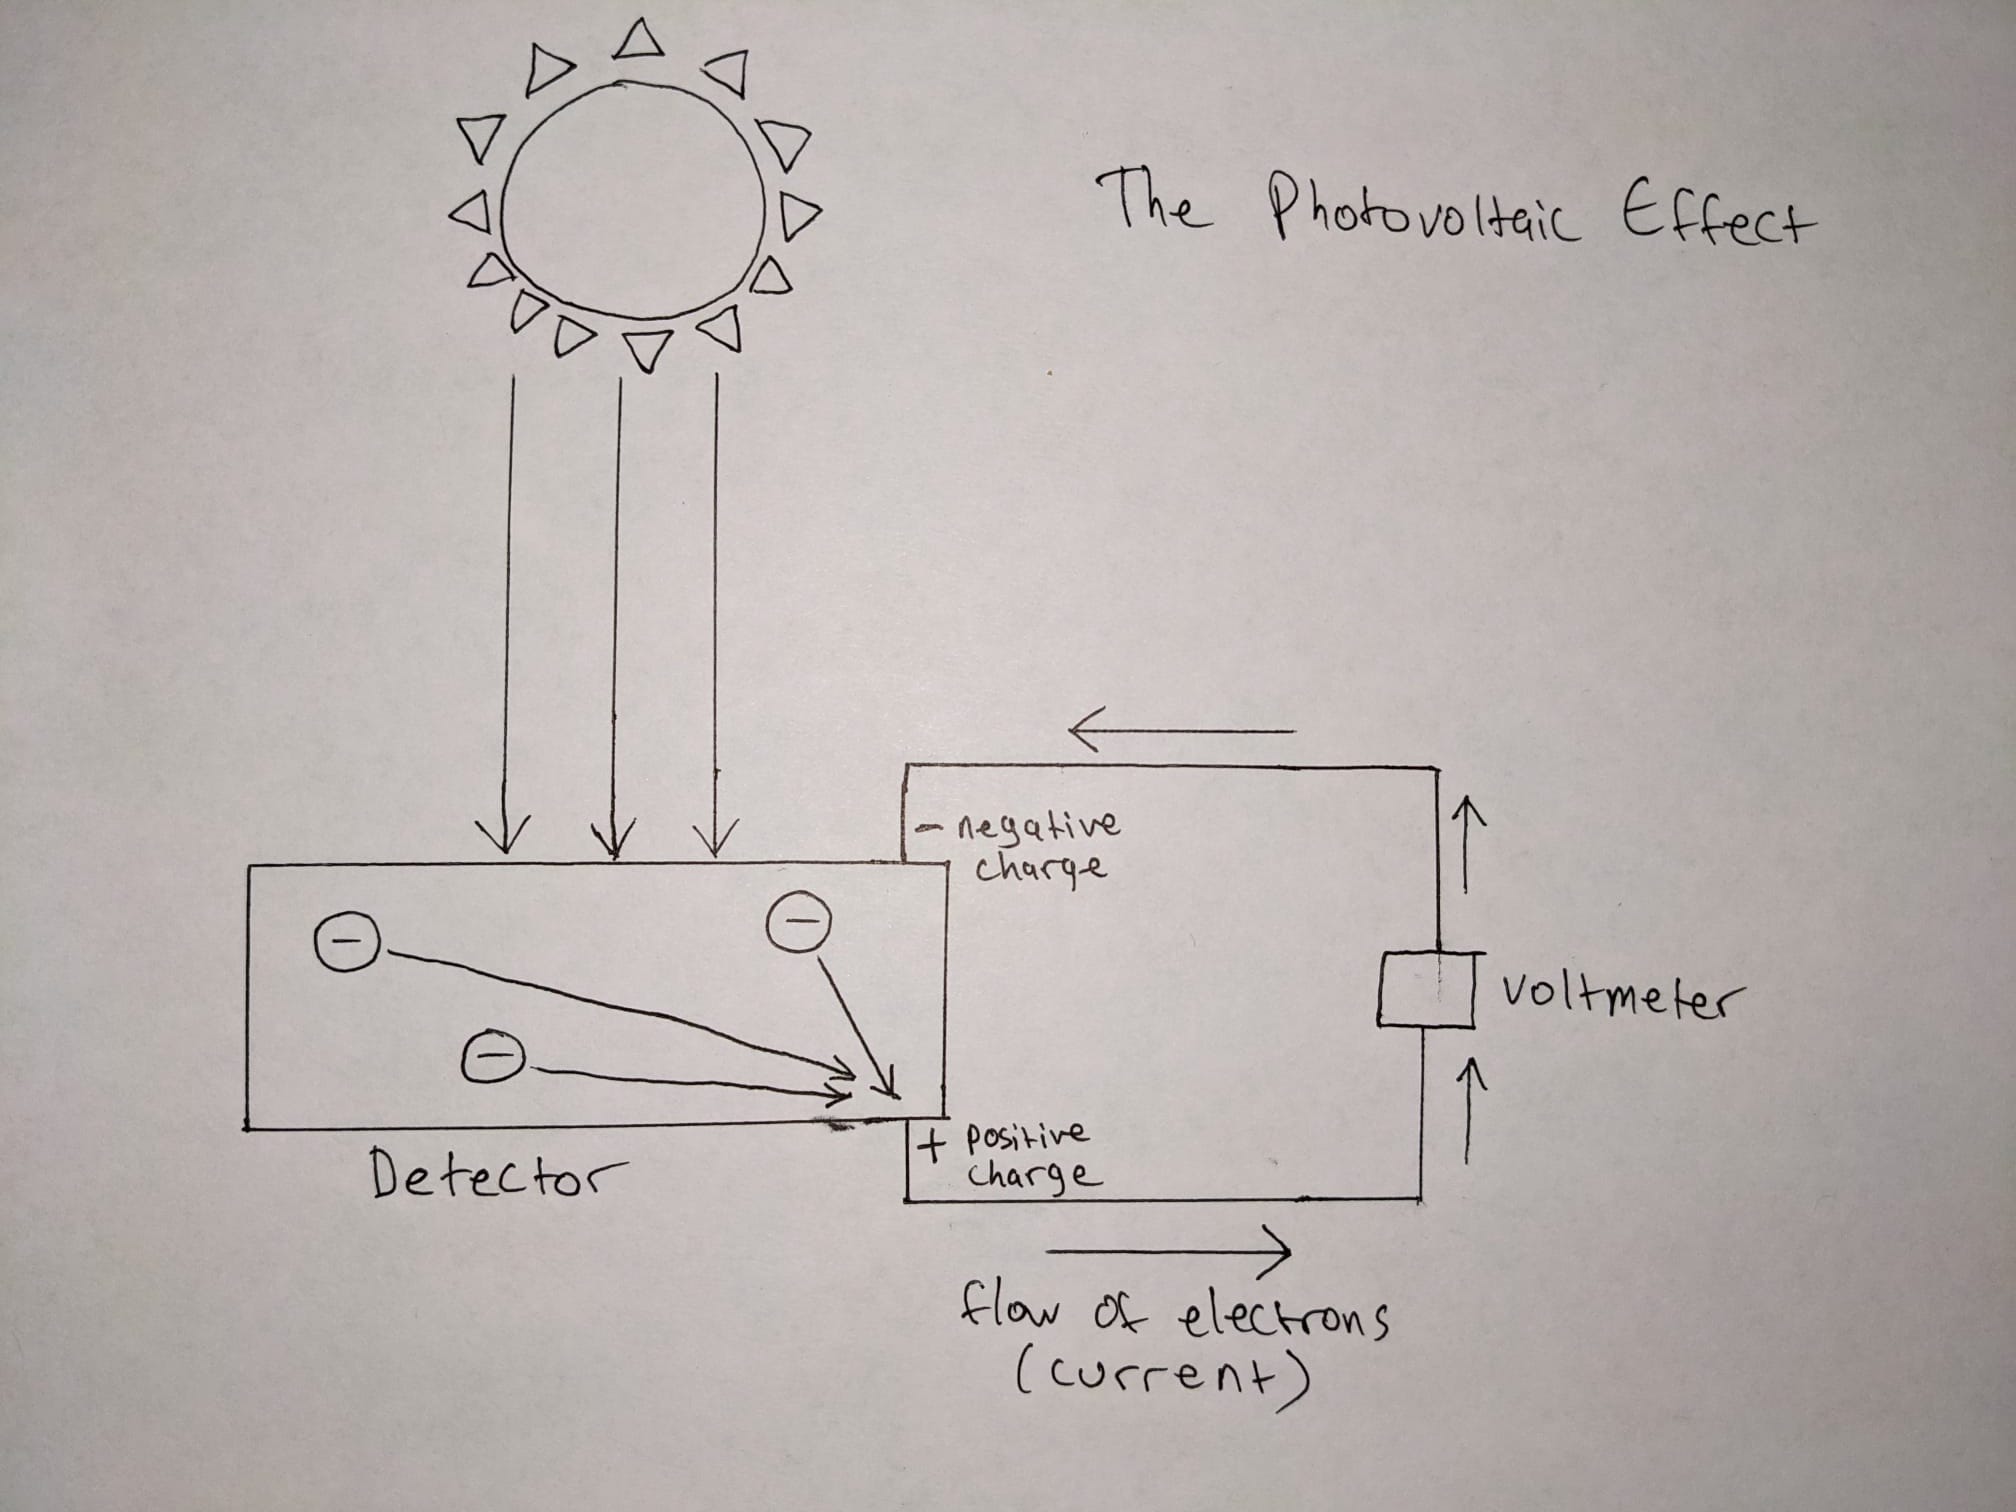 The Photovoltaic Effect
- negative
charge
voltmeter
+ positive
charge
Detector
flow of electrons
(current)